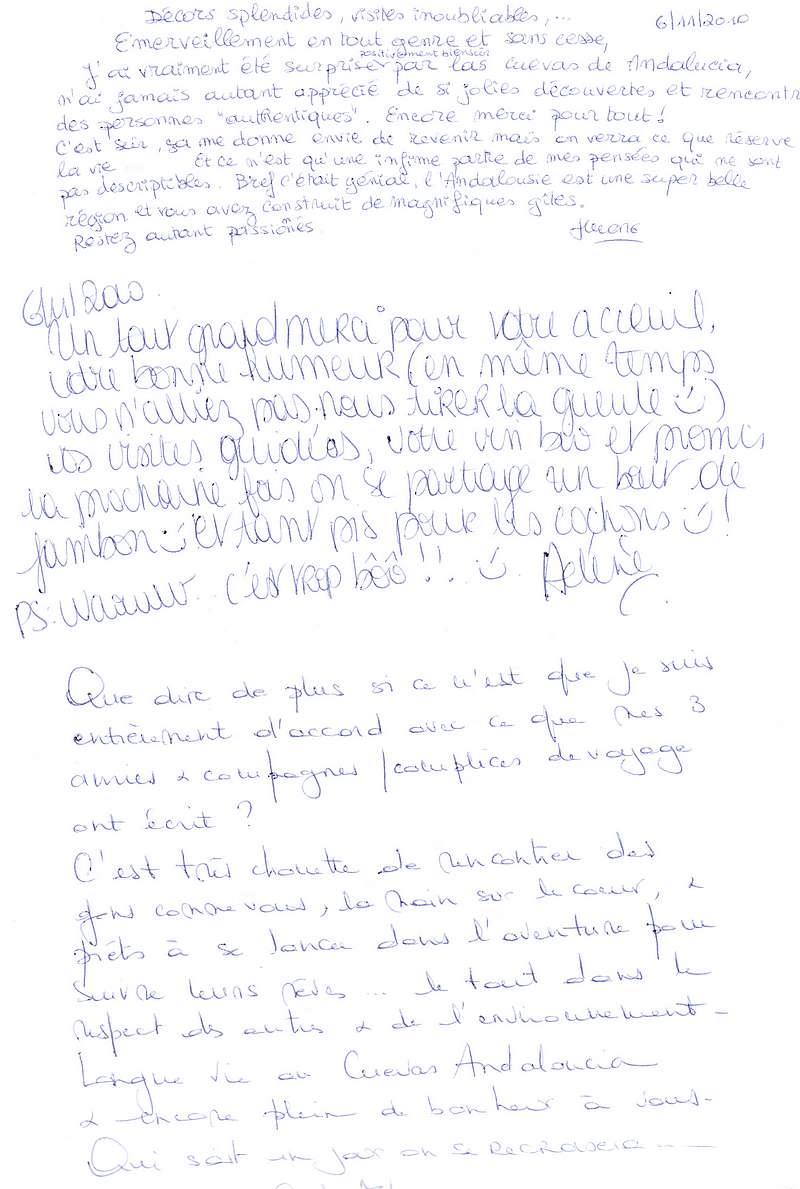 Décors splendides, visites inoubliables,... 6/11/2010
Emerveillement en tout genre et sans cesse,
positivement bien sûr
J'ai vraiment été surprise par las cuevas de Andalucia,
n'ai jamais autant apprécié de si jolies découvertes et rencontr
des personnes "authentiques". Encore merci pour tout!
C'est sûr, ça me donne envie de revenir mais on verra ce que réserve
la vie Et ce n'est qu'une infime partie de mes pensées qui ne sont
pas descriptibles. Bref c'était génial, l'Andalousie est une super belle
région et vous avez construit de magnifiques gîtes.
Restez autant passionnés.
6/11/2010
Un tout grand merci pour votre acceuil,
votre bonne humeur (en même temps
vous n'alliez pas nous tirer la gueule ☺)
vos visites guidées, votre vin bio et promis
la prochaine fois on se partage un bout de
jambon ☺ et tant pis pour les cochons ☺!
PS: c'est trop bôô!! ☺ Hélène
Que dire de plus si ce n'est que je suis
entièrement d'accord avec ce que mes 3
amies & compagnes / complices de voyage
ont écrit ?
C'est très chouette de rencontrer des
gens comme vous, la main sur le coeur, &
prêts à se lancer dans l'aventure pour
suivre leurs rêves... le tout dans le
respect des autres & de l'environnement -
Longue vie au Cuevas Andaloucia
& encore plein de bonheur à vous -
Qui sait un jour on se recroisera ...